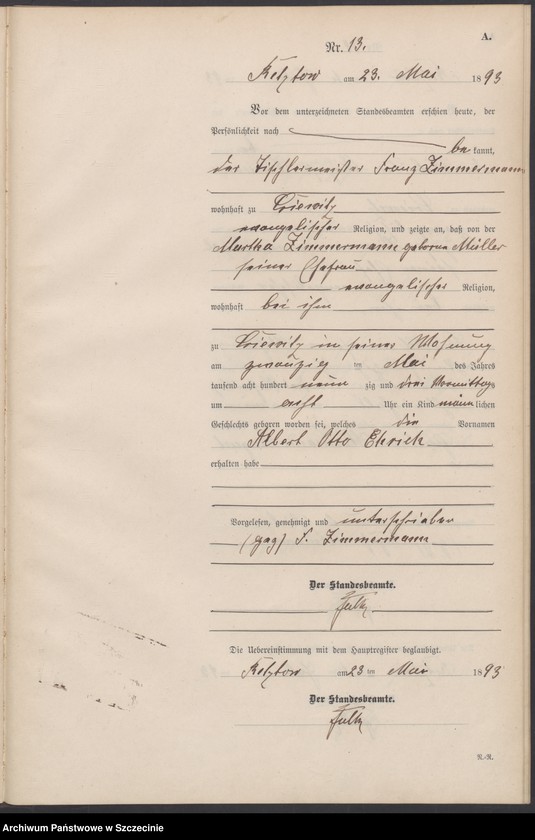 A.
Nr. 13.
am 23. Mai 1893
Vor dem unterzeichneten Standesbeamten erschien heute, der
Persönlichkeit nach
bekannt,
der Tischlermeister Franz Zimmermann
wohnhaft zu
evangelischer Religion, und zeigte an, daß von der
Martha Zimmermann geborne Müller
seiner Ehefrau
evangelischer Religion,
wohnhaft bei ihm
zu in seiner Wohnung
am zwanzig ten Mai des Jahres
tausend acht hundert neun zig und drei Vormittags
um acht Uhr ein Kind männlichen
Geschlechts geboren worden sei, welches die Vornamen
Albert Otto Ehrich
erhalten habe
Vorgelesen, genehmigt und unterschrieben
(gez) F. Zimmermann
Der Standesbeamte.
Die Uebereinstimmung mit dem Hauptregister beglaubigt.
am 23 ten Mai 1893
Der Standesbeamte.
R.-R.
Archiwum Państwowe w Szczecinie